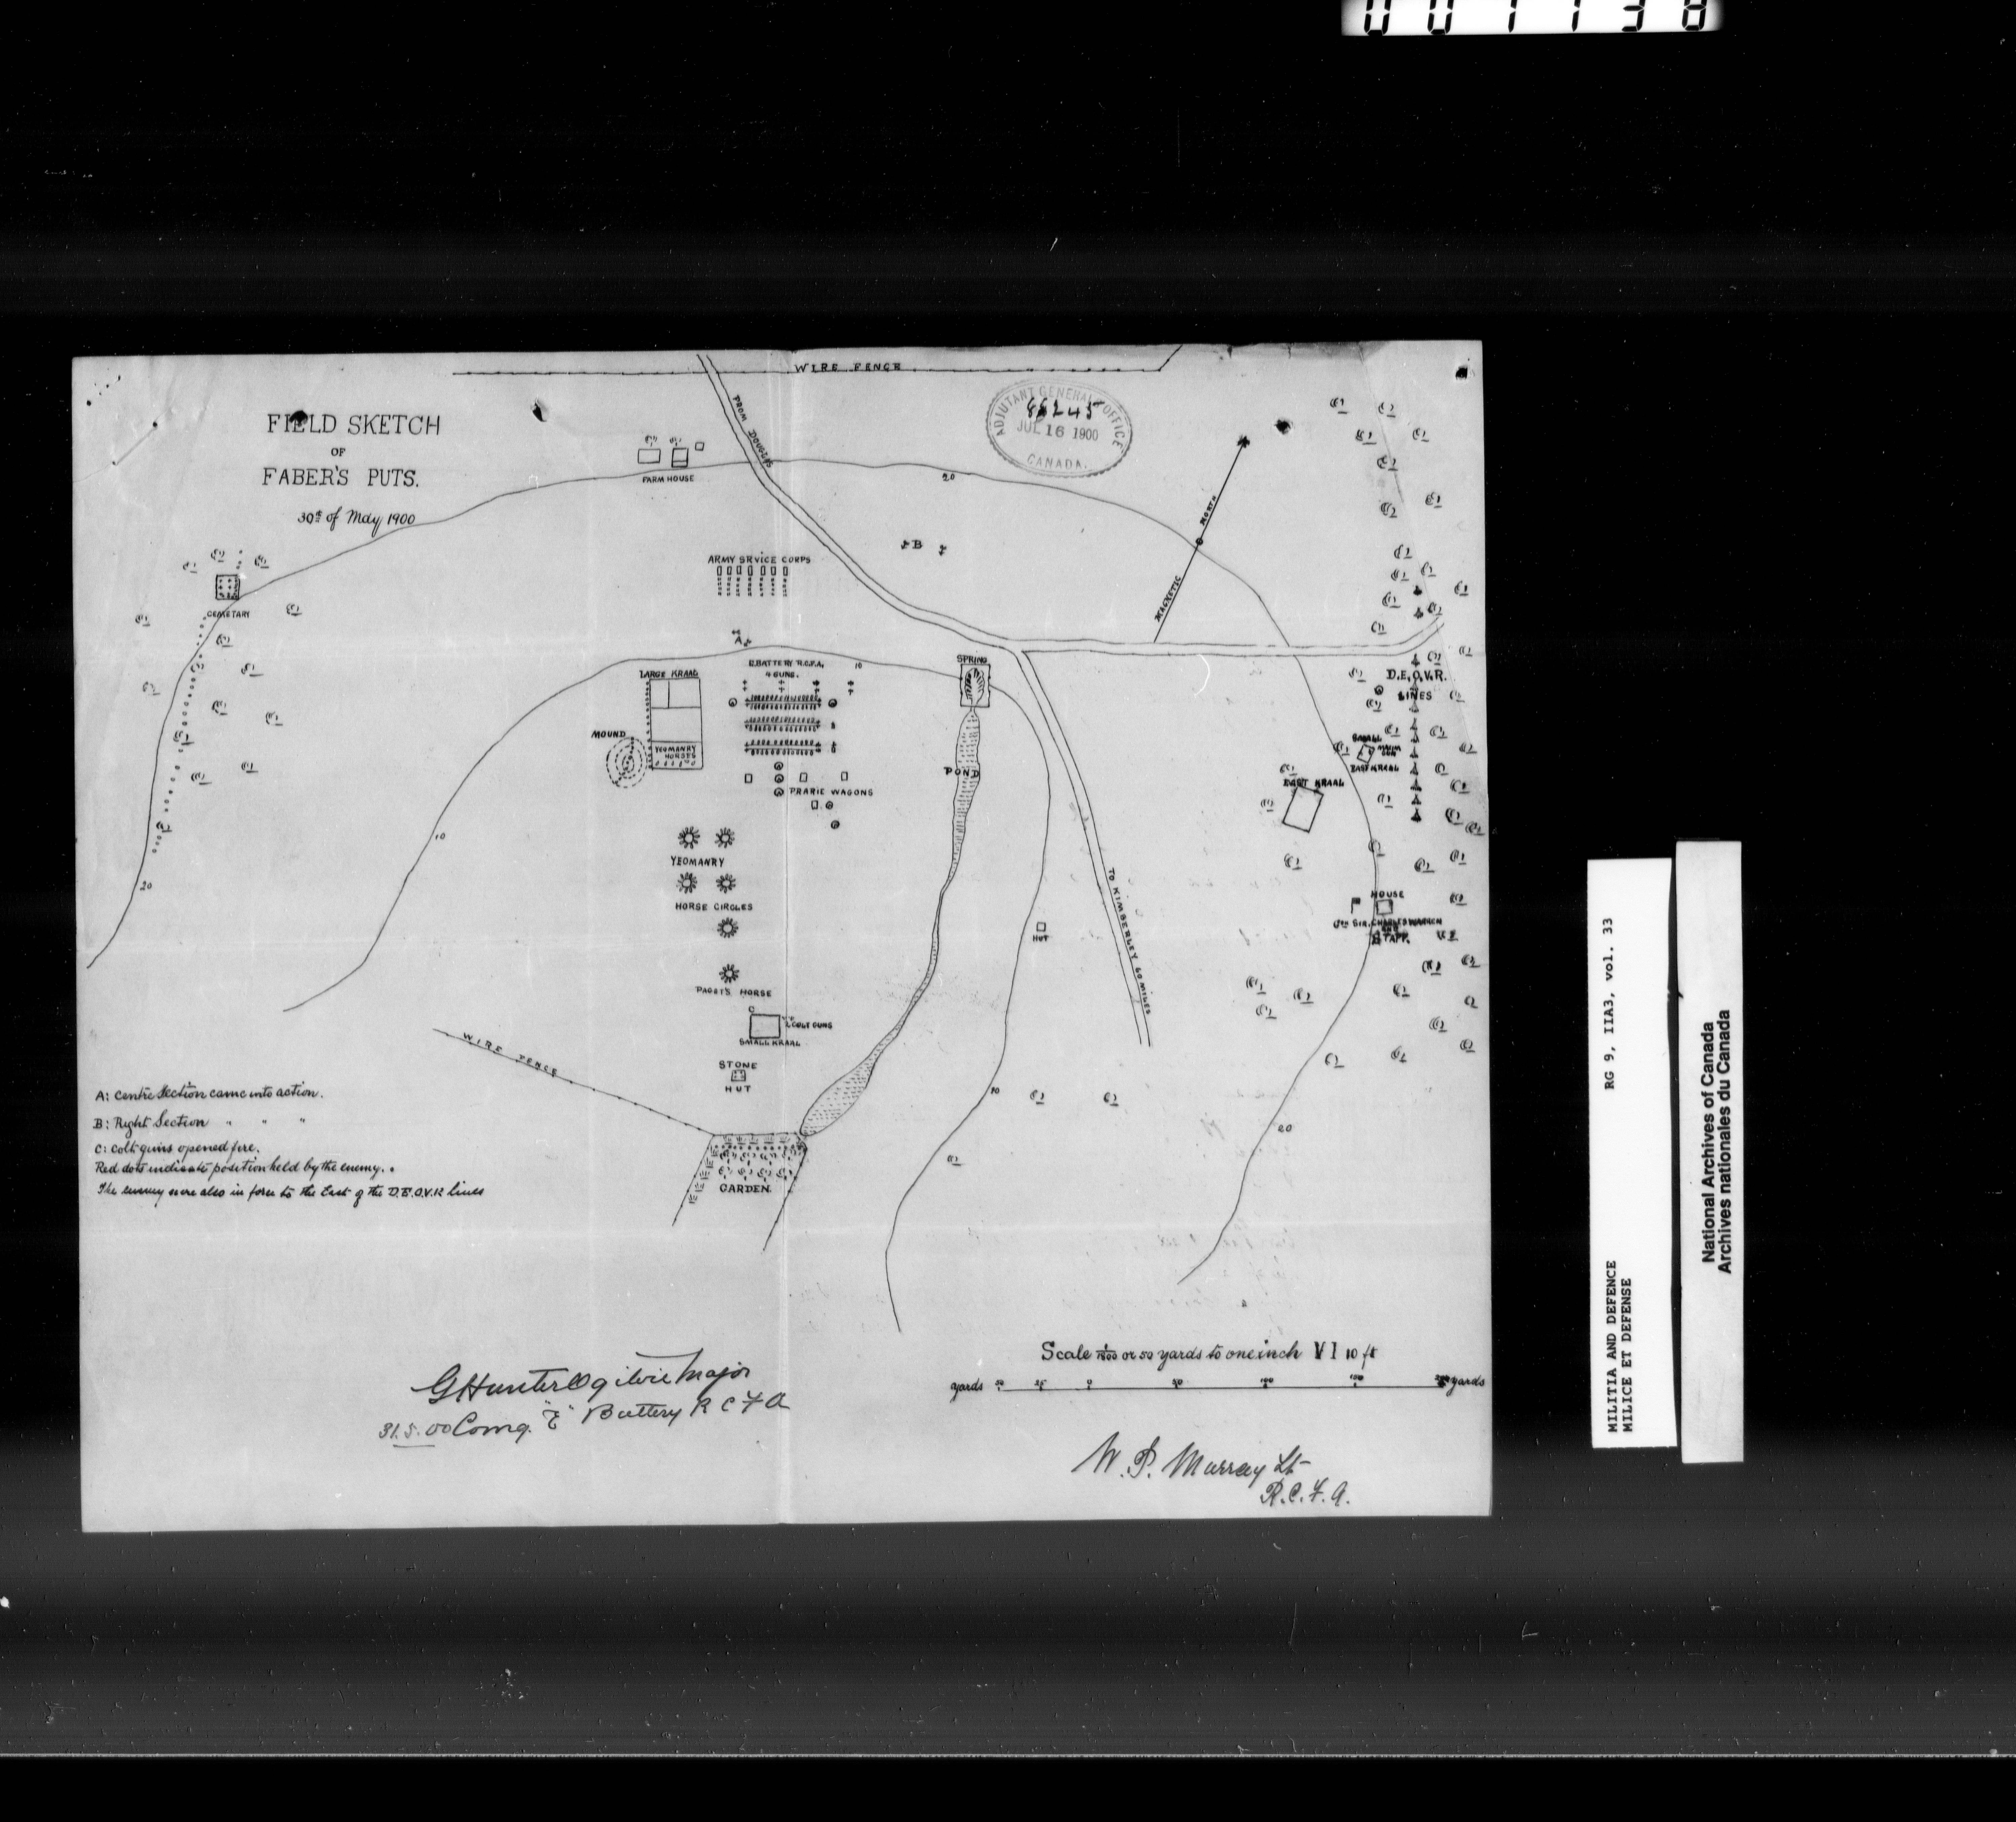 001138
WIRE FENCE
FIELD SKETCH
OF
FABER'S PUTS.
30th of May 1900
ADJUTANT GENERAL'S OFFICE
JUL 16 1900
CANADA.
FROM DOUGLAS
FARM HOUSE
20
MAGNETIC NORTH
B
ARMY SRVICE CORPS
CEMETARY
A
E. BATTERY R.C.F.A.
4 GUNS.
10
SPRING
LARGE KRAAL
D.E.O.V.R.
LINES
MOUND
YEOMANRY
HORSES
SMALL
MAXIM
GUN
EAST KRAAL
POND
EAST KRAAL
PRARIE WAGONS
10
YEOMANRY
HORSE CIRCLES
20
TO KIMBERLEY 60 MILES
HOUSE
Gen SIR. CHARLES WARREN
AND
STAFF.
HUT
PAGET'S HORSE
C
2 COLT GUNS
SMALL KRAAL
WIRE FENCE
STONE
HUT
10
20
GARDEN
A: Centre Section came into action.
B: Right Section " " "
C: Colt guns opened fire.
Red dots indicate position held by the enemy.
The enemy were also in force to the East of the D.E.O.V.R lines
Scale 1/1800 or 50 yards to one inch V I 10 ft
yards 50 25 0 50 100 150 200 yards
G Hunter Ogilvie Major
31.5.00 Comg. "E" Battery R C F A
W. P. Murray Lt
R.C.F.A.
MILITIA AND DEFENCE RG 9, IIA3, vol. 33
MILICE ET DEFENSE
National Archives of Canada
Archives nationales du Canada